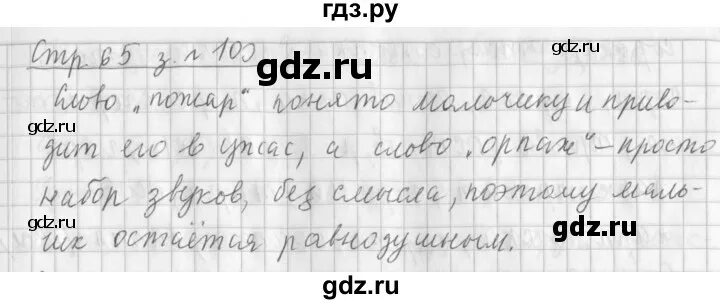 гдз.ру
Стр. 65 з. № 100
gdz.ru gdz.ru
Слово „пожар" понято мальчику и приво-
gdz.ru
дит его в ужас, а слово „орпаж" – просто
gdz.ru
набор звуков, без смысла, поэтому маль-
gdz.ru gdz.ru
чик остаётся равнодушным.
gdz.ru